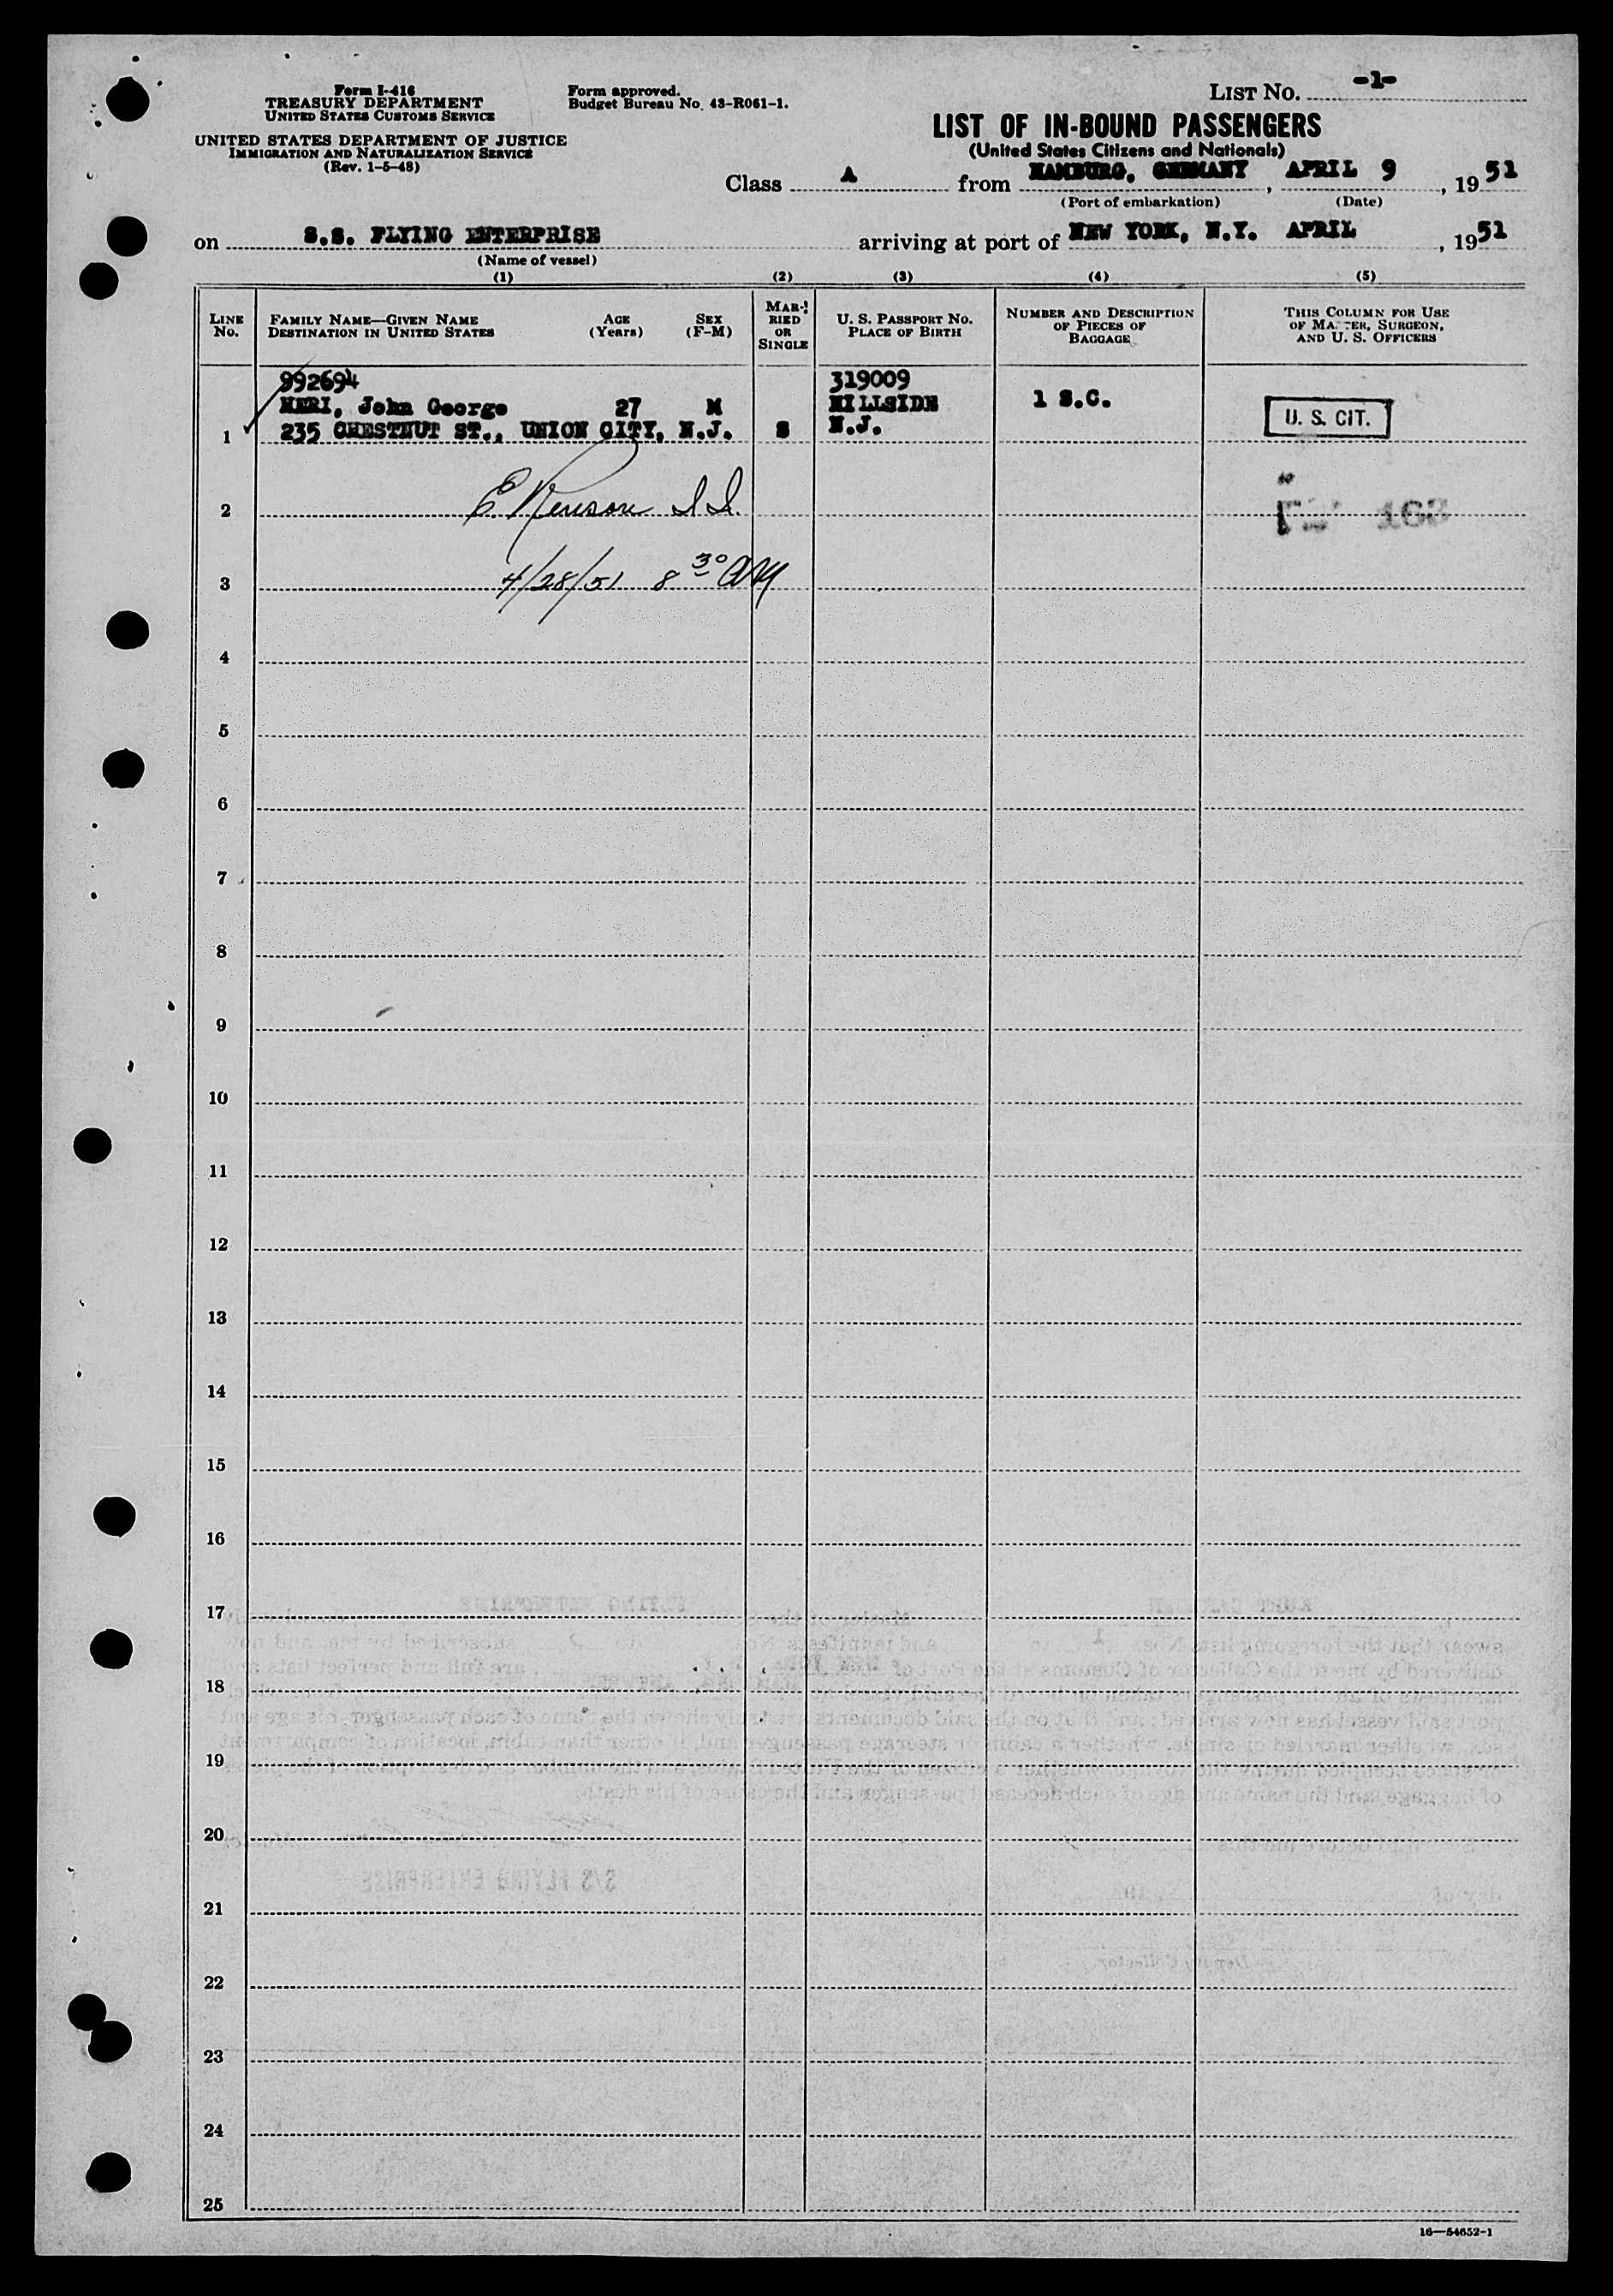 Form I-416
TREASURY DEPARTMENT
UNITED STATES CUSTOMS SERVICE
UNITED STATES DEPARTMENT OF JUSTICE
IMMIGRATION AND NATURALIZATION SERVICE
(Rev. 1-5-48)
Form approved.
Budget Bureau No. 43-R061-1.
LIST NO. -1-
LIST OF IN-BOUND PASSENGERS
(United States Citizens and Nationals)
Class A from HAMBURG, GERMANY, APRIL 9, 1951
(Port of embarkation) (Date)
on S.S. FLYING ENTERPRISE arriving at port of NEW YORK, N.Y. APRIL, 1951
(Name of vessel)
(1) (2) (3) (4) (5)
LINE No.
FAMILY NAME—GIVEN NAME
DESTINATION IN UNITED STATES
AGE (Years)
SEX (F-M)
MARRIED OR SINGLE
U. S. PASSPORT NO.
PLACE OF BIRTH
NUMBER AND DESCRIPTION OF PIECES OF BAGGAGE
THIS COLUMN FOR USE OF MASTER, SURGEON, AND U. S. OFFICERS
992694 319009
John George 27 M HILLSIDE 1 S.C. U. S. CIT.
1 235 CHESTNUT ST., UNION CITY, N.J. S N.J.
2
3 4/28/51 8 30 AM
4
5
6
7
8
9
10
11
12
13
14
15
16
17
18
19
20
21
22
23
24
25
16—54652-1